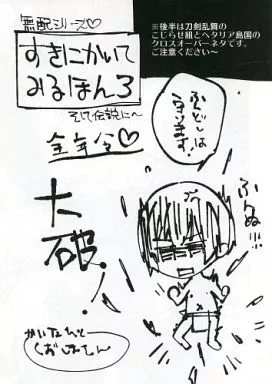 無配シリーズ♡
すきにかいて
みるほん3
そして伝説に〜
全年令♡
※後半は刀剣乱舞の
こじらせ組とヘタリア島国の
クロスオーバーネタです。
ご注意ください〜
ふんどしは
守ります!
ふんぬ!!!
大破!